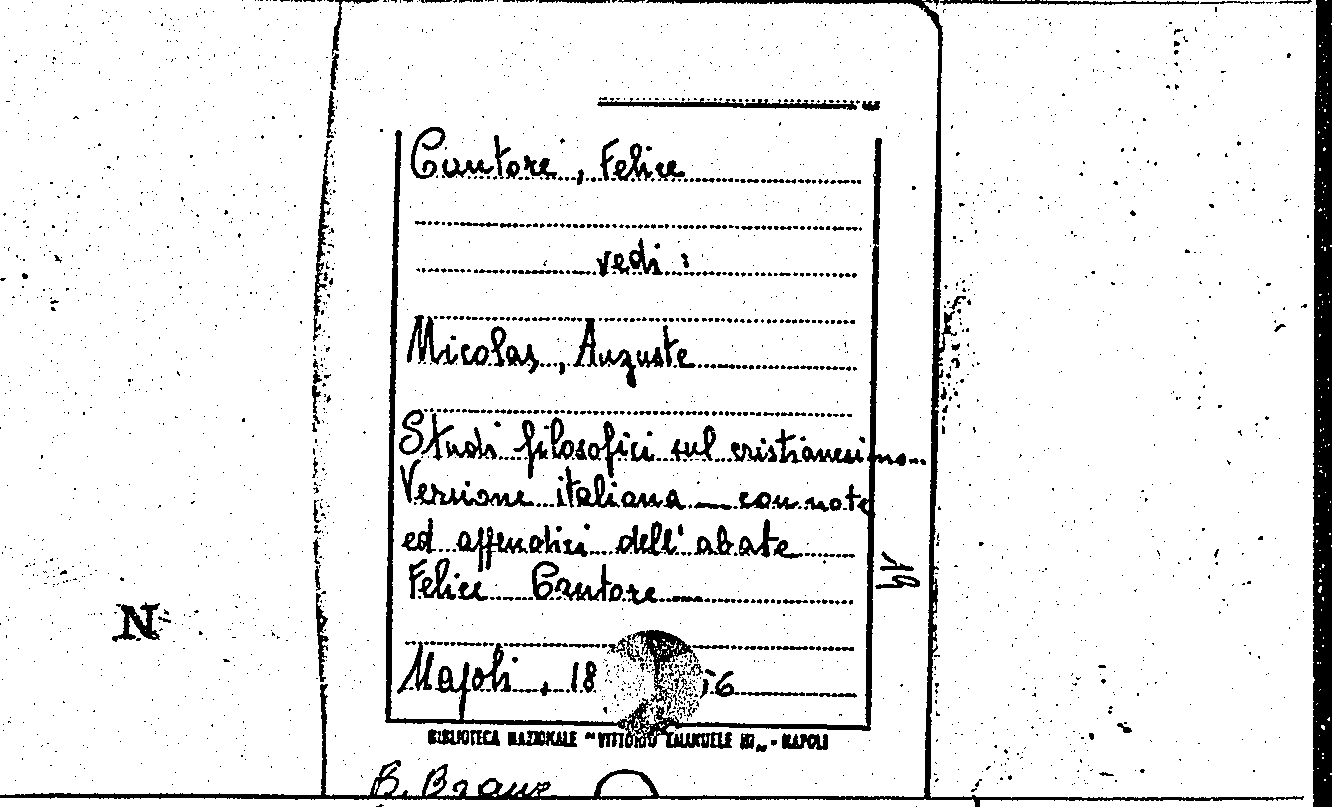 Cantore, Felice
vedi:
Nicolas, Auguste
Studi filosofici sul cristianesimo..
Versione italiana — con note
ed appendici dell'abate
Felice Cantore —
Napoli, 18 6
BIBLIOTECA NAZIONALE "VITTORIO EMANUELE III„ - NAPOLI
19
N
B. Branc